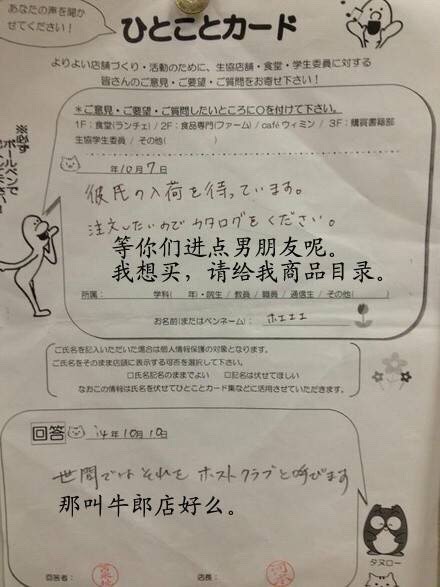 あなたの声を聞か
せてください！
ひとことカード
よりよい店舗づくり・活動のために、生協店舗・食堂・学生委員に対する
皆さんのご意見・ご要望・ご質問をお寄せ下さい！
※必ず
ボールペンで
＊ご意見・ご要望・ご質問したいところに○を付けて下さい。
1F：食堂(ランチェ) / 2F：食品専門(ファーム) / café ウィミン / 3F：購買書籍部
生協学生委員 / その他(　　　　)
年10月7日
彼氏の入荷を待っています。
注文したいのでカタログをください。
等你们进点男朋友呢。
我想买，请给我商品目录。
所属：　　　　学科(　年・院生 / 教員 / 職員 / 通信生 / その他(　　　　)
お名前(またはペンネーム)：　ホエエエ
ご氏名を記入いただいた場合は個人情報保護の対象となります。
ご氏名をそのまま店頭に表示する可否を選択して下さい。
□氏名記名のままでよい　□記名は伏せてほしい
なおこの情報は氏名を伏せてひとことカード集などに活用させていただきます。
回答　'14年10月10日
世間ではそれをホストクラブと呼びます
那叫牛郎店好么。
タヌロー
回答者：　　店長：